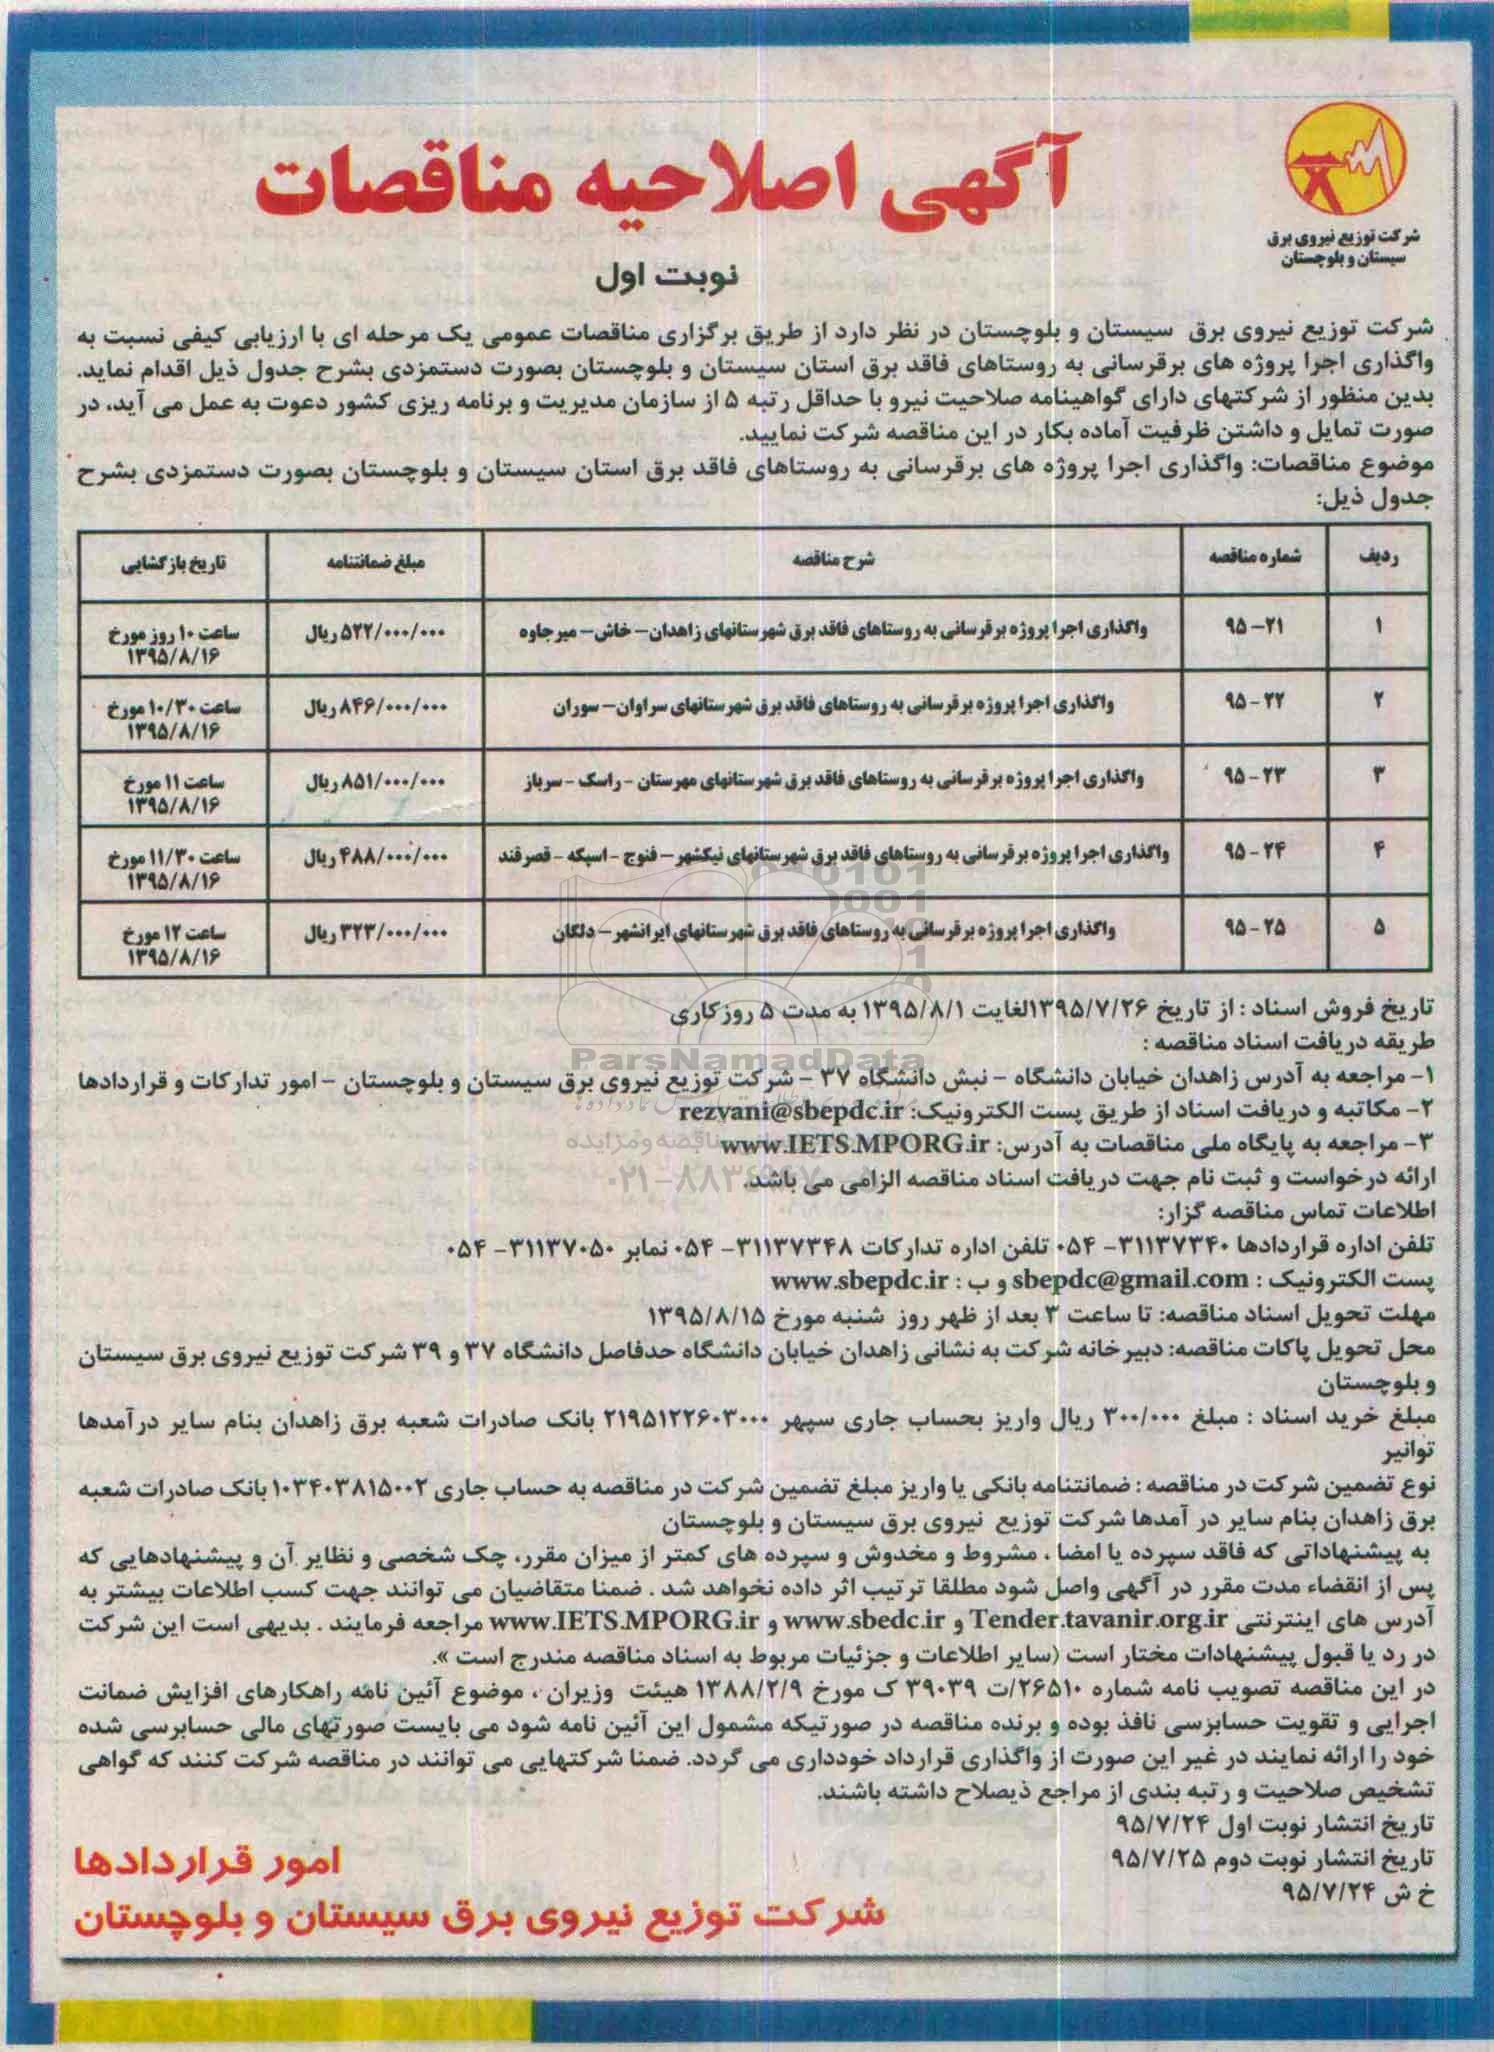 آگهی اصلاحیه مناقصات
شرکت توزیع نیروی برق
سیستان و بلوچستان
نوبت اول
شرکت توزیع نیروی برق سیستان و بلوچستان در نظر دارد از طریق برگزاری مناقصات عمومی یک مرحله ای با ارزیابی کیفی نسبت به
واگذاری اجرا پروژه های برقرسانی به روستاهای فاقد برق استان سیستان و بلوچستان بصورت دستمزدی بشرح جدول ذیل اقدام نماید.
بدین منظور از شرکتهای دارای گواهینامه صلاحیت نیرو با حداقل رتبه ۵ از سازمان مدیریت و برنامه ریزی کشور دعوت به عمل می آید، در
صورت تمایل و داشتن ظرفیت آماده بکار در این مناقصه شرکت نمایید.
موضوع مناقصات: واگذاری اجرا پروژه های برقرسانی به روستاهای فاقد برق استان سیستان و بلوچستان بصورت دستمزدی بشرح
جدول ذیل:
ردیف شماره مناقصه شرح مناقصه مبلغ ضمانتنامه تاریخ بازگشایی
۱ ۹۵-۲۱ واگذاری اجرا پروژه برقرسانی به روستاهای فاقد برق شهرستانهای زاهدان– خاش– میرجاوه ۵۲۲/۰۰۰/۰۰۰ ریال ساعت ۱۰ روز مورخ
۱۳۹۵/۸/۱۶
۲ ۹۵-۲۲ واگذاری اجرا پروژه برقرسانی به روستاهای فاقد برق شهرستانهای سراوان– سوران ۸۴۶/۰۰۰/۰۰۰ ریال ساعت ۱۰/۳۰ مورخ
۱۳۹۵/۸/۱۶
۳ ۹۵-۲۳ واگذاری اجرا پروژه برقرسانی به روستاهای فاقد برق شهرستانهای مهرستان - راسک - سرباز ۸۵۱/۰۰۰/۰۰۰ ریال ساعت ۱۱ مورخ
۱۳۹۵/۸/۱۶
۴ ۹۵-۲۴ واگذاری اجرا پروژه برقرسانی به روستاهای فاقد برق شهرستانهای نیکشهر– فنوج - اسپکه - قصرقند ۴۸۸/۰۰۰/۰۰۰ ریال ساعت ۱۱/۳۰ مورخ
۱۳۹۵/۸/۱۶
۵ ۹۵-۲۵ واگذاری اجرا پروژه برقرسانی به روستاهای فاقد برق شهرستانهای ایرانشهر– دلگان ۳۲۳/۰۰۰/۰۰۰ ریال ساعت ۱۲ مورخ
۱۳۹۵/۸/۱۶
تاریخ فروش اسناد : از تاریخ ۱۳۹۵/۷/۲۶لغایت ۱۳۹۵/۸/۱ به مدت ۵ روزکاری
طریقه دریافت اسناد مناقصه :
ParsNamadData
۱- مراجعه به آدرس زاهدان خیابان دانشگاه – نبش دانشگاه ۳۷ – شرکت توزیع نیروی برق سیستان و بلوچستان – امور تدارکات و قراردادها
۲- مکاتبه و دریافت اسناد از طریق پست الکترونیک: rezvani@sbepdc.ir
۳- مراجعه به پایگاه ملی مناقصات به آدرس: www.IETS.MPORG.ir
ارائه درخواست و ثبت نام جهت دریافت اسناد مناقصه الزامی می باشد.
اطلاعات تماس مناقصه گزار:
تلفن اداره قراردادها ۳۱۱۳۷۳۴۰- ۰۵۴ تلفن اداره تدارکات ۳۱۱۳۷۳۴۸- ۰۵۴ نمابر ۳۱۱۳۷۰۵۰- ۰۵۴
پست الکترونیک : sbepdc@gmail.com و ب : www.sbepdc.ir
مهلت تحویل اسناد مناقصه: تا ساعت ۳ بعد از ظهر روز شنبه مورخ ۱۳۹۵/۸/۱۵
محل تحویل پاکات مناقصه: دبیرخانه شرکت به نشانی زاهدان خیابان دانشگاه حدفاصل دانشگاه ۳۷ و ۳۹ شرکت توزیع نیروی برق سیستان
و بلوچستان
مبلغ خرید اسناد : مبلغ ۳۰۰/۰۰۰ ریال واریز بحساب جاری سپهر ۲۱۹۵۱۲۲۶۰۳۰۰۰ بانک صادرات شعبه برق زاهدان بنام سایر درآمدها
توانیر
نوع تضمین شرکت در مناقصه : ضمانتنامه بانکی یا واریز مبلغ تضمین شرکت در مناقصه به حساب جاری ۱۰۳۴۰۳۸۱۵۰۰۲ بانک صادرات شعبه
برق زاهدان بنام سایر در آمدها شرکت توزیع نیروی برق سیستان و بلوچستان
به پیشنهاداتی که فاقد سپرده یا امضا ، مشروط و مخدوش و سپرده های کمتر از میزان مقرر، چک شخصی و نظایر آن و پیشنهادهایی که
پس از انقضاء مدت مقرر در آگهی واصل شود مطلقا ترتیب اثر داده نخواهد شد . ضمنا متقاضیان می توانند جهت کسب اطلاعات بیشتر به
آدرس های اینترنتی Tender.tavanir.org.ir و www.sbedc.ir و www.IETS.MPORG.ir مراجعه فرمایند . بدیهی است این شرکت
در رد یا قبول پیشنهادات مختار است (سایر اطلاعات و جزئیات مربوط به اسناد مناقصه مندرج است ».
در این مناقصه تصویب نامه شماره ۲۶۵۱۰/ت ۳۹۰۳۹ ک مورخ ۱۳۸۸/۲/۹ هیئت وزیران ، موضوع آئین نامه راهکارهای افزایش ضمانت
اجرایی و تقویت حسابرسی نافذ بوده و برنده مناقصه در صورتیکه مشمول این آئین نامه شود می بایست صورتهای مالی حسابرسی شده
خود را ارائه نمایند در غیر این صورت از واگذاری قرارداد خودداری می گردد. ضمنا شرکتهایی می توانند در مناقصه شرکت کنند که گواهی
تشخیص صلاحیت و رتبه بندی از مراجع ذیصلاح داشته باشند.
تاریخ انتشار نوبت اول ۹۵/۷/۲۴
تاریخ انتشار نوبت دوم ۹۵/۷/۲۵
خ ش ۹۵/۷/۲۴
امور قراردادها
شرکت توزیع نیروی برق سیستان و بلوچستان